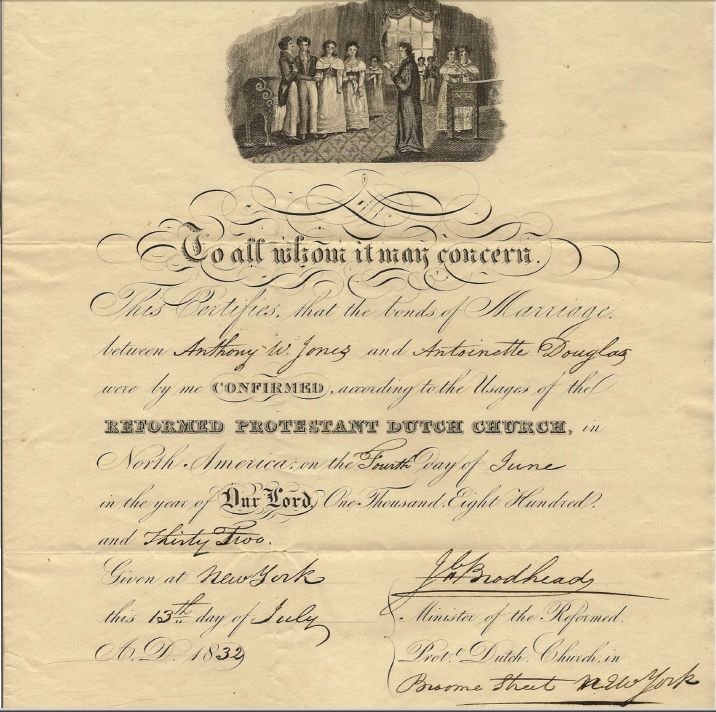 To all whom it may concern.
This Certifies, that the bonds of Marriage,
between Anthony W. Jones and Antoinette Douglas
were by me CONFIRMED, according to the Usages of the
REFORMED PROTESTANT DUTCH CHURCH, in
North America; on the Fourth day of June
in the year of Our Lord, One Thousand, Eight Hundred,
and Thirty Two.
Given at New York
this 13th day of July
A.D. 1832
Brodhead
Minister of the Reformed
Prot.t Dutch Church, in
Broome Street New York